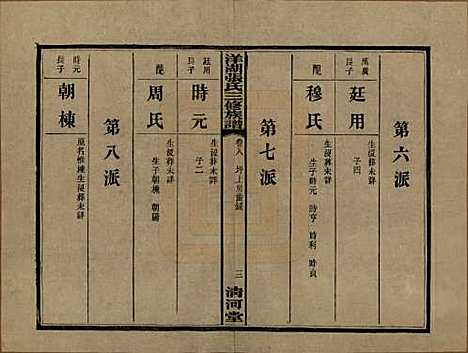 第六派
萬廣
長子
廷用
生沒葬未詳
子四
配
穆氏
生沒葬未詳
生子時元 時亨 時利 時貞
第七派
洋湖張氏三修族譜
卷八 坪上房齒錄
三
清河堂
廷用
長子
時元
生沒葬未詳
子二
配
周氏
生沒葬未詳
生子朝棟 朝陽
第八派
時元
長子
朝棟
原名惟棟生沒葬未詳